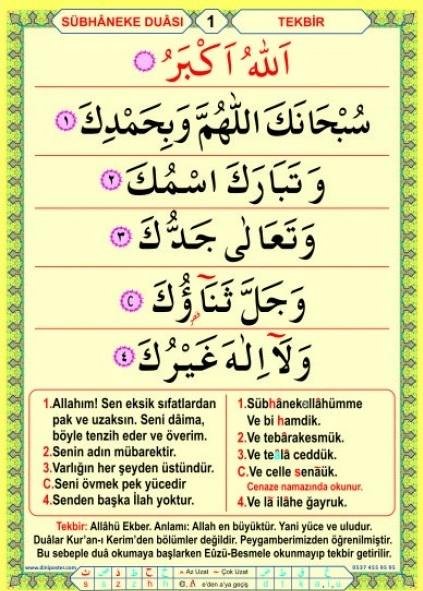 SÜBHÂNEKE DUÂSI 1 TEKBİR
اَللهُ اَكْبَرُ
سُبْحَانَكَ اللّٰهُمَّ وَبِحَمْدِكَ ١
وَتَبَارَكَ اسْمُكَ ٢
وَتَعَالٰى جَدُّكَ ٣
وَجَلَّ ثَنَاۤؤُكَ C
وَلَاۤ اِلٰهَ غَيْرُكَ ٤
1.Allahım! Sen eksik sıfatlardan
pak ve uzaksın. Seni dâima,
böyle tenzih eder ve överim.
2.Senin adın mübarektir.
3.Varlığın her şeyden üstündür.
C.Seni övmek pek yücedir
4.Senden başka İlah yoktur.
1.Sübhânekallâhümme
Ve bi hamdik.
2.Ve tebârakesmük.
3.Ve teâlâ ceddük.
C.Ve celle senâük.
Cenaze namazında okunur.
4.Ve lâ ilâhe ğayruk.
Tekbir: Allâhü Ekber. Anlamı: Allah en büyüktür. Yani yüce ve uludur.
Duâlar Kur'an-ı Kerim'den bölümler değildir. Peygamberimizden öğrenilmiştir.
Bu sebeple duâ okumaya başlarken Eûzü-Besmele okunmayıp tekbir getirilir.
www.diniposter.com Az Uzat Çok Uzat 0537 455 95 95